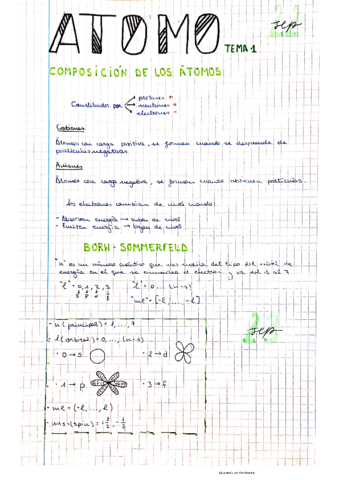 ATOMO TEMA 1
22 sep
COMPOSICIÓN DE LOS ÁTOMOS
Constituidos por → protones +
→ neutrones +
→ electrones -
Cationes
Átomos con carga positiva, se forman cuando se desprende de
partículas negativas.
Aniones
Átomos con carga negativa, se forman cuando
Los electrones cambian de nivel cuando:
- Absorben energía → suben de nivel
- Emiten energía → bajan de nivel
BORH-SOMMERFELD
"n" es un número cuántico que nos indica del tipo del nivel de
energía en el que se encuentra el electrón y va del 1 al 7
"l" = 0, 1, 2, 3
s p d f
"l" = 0 ... (n-1)
"ml" = [-l, ... -l]
23 sep
- n (principal) = 1, ..., 7
- l (orbital) = 0, ..., (n-1)
· 0 → s
· 2 → d
· 1 → p
· 3 → f
- ml = (-l, ..., l)
- ms = (spin) = + 1/2, - 1/2